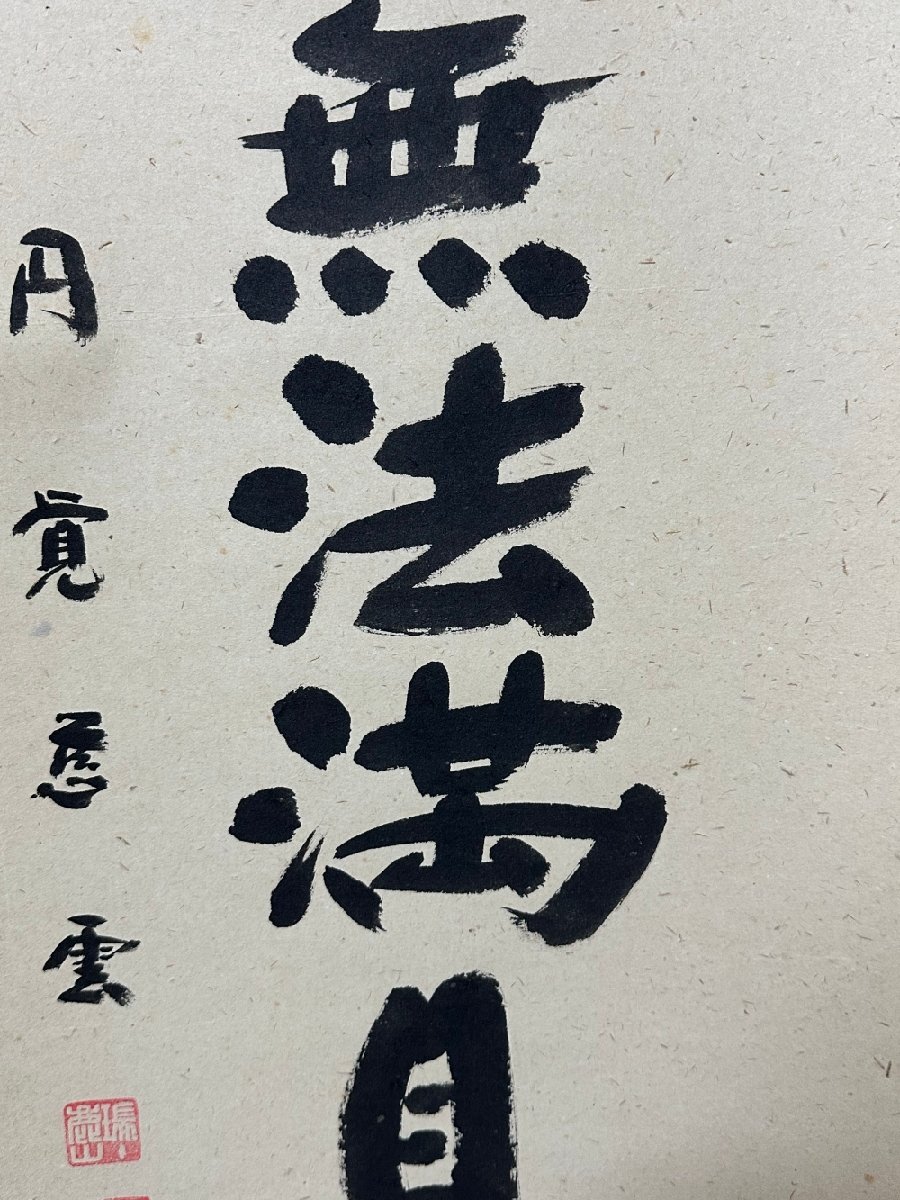 無法満目
円覚慈雲